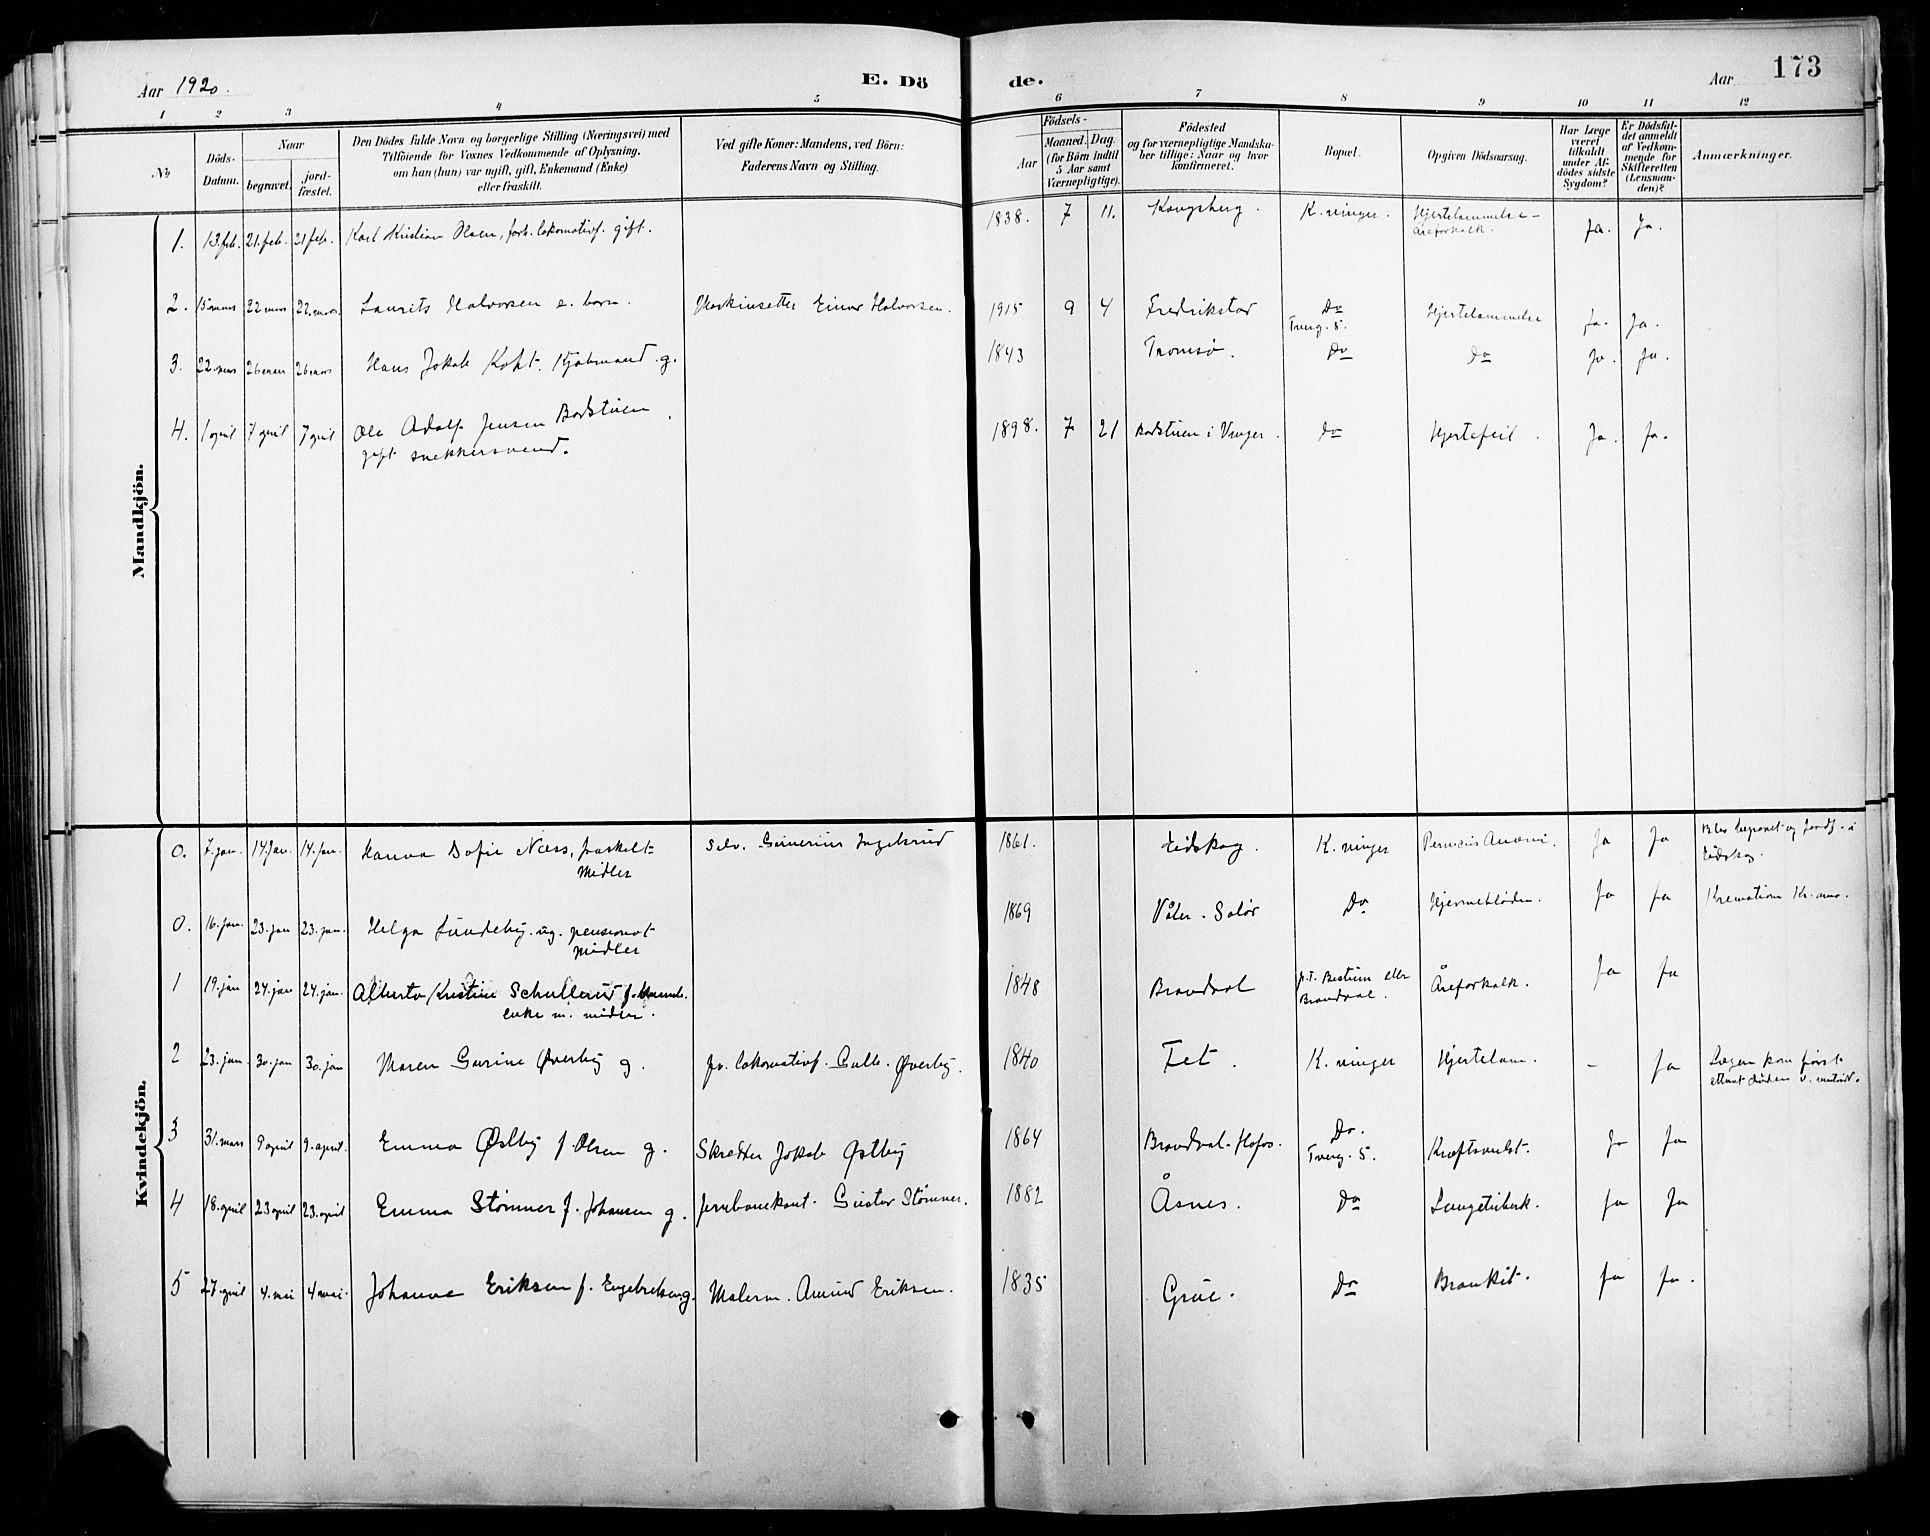 Aar 1920. E. Dö de. Aar 173
1 2 3 4 5 6 7 8 9 10 11 12
№
Döds-
Datum.
Naar
begravet.
jord-
fæstet.
Den Dödes fulde Navn og borgerlige Stilling (Næringsvei) med
Tilföiende for Voxnes Vedkommende af Oplysning,
om han (hun) var ugift, gift, Enkemand (Enke)
eller fraskilt.
Ved gifte Koner: Mandens, ved Börn:
Faderens Navn og Stilling.
Födsels-
Aar
Maaned. Dag.
(for Börn indtil
5 Aar samt
Værnepligtige).
Födested
og for værnepligtige Mandska-
ber tillige: Naar og hvor
konfirmeret.
Bopæl.
Opgiven Dödsaarsag.
Har Læge
været
tilkaldt
under Af-
dödes sidste
Sygdom?
Er Dödsfal-
det anmeldt
af Vedkom-
mende for
Skifteretten
(Lensman-
den)?
Anmærkninger.
Mandkjön.
1. 13. feb. 21. feb. 21 feb. Karl Kristian Olsen, forh. lokomotivf. gift. 1838. 7 11. Kongsberg. K.vinger. Hjertelammelse-
Åreforkalk. Ja. Ja.
2. 15 mars 22 mars 22. mars. Laurits Halvorsen e. barn. Maskinsetter Einar Halvorsen. 1915 9 4 Fredrikstad Do
Tverg. 5. Hjertelammelse Ja. Ja.
3. 22. mars 26 mars 26 mars Hans Jakob Koht. Kjöbmand. g. 1843 Tromsø. Do Do Ja. Ja.
4. 1 april 7 april 7 april Ole Adolf Jensen Badstuen.
gift snekkersvend. 1898. 7 21 Badstuen i Vinger. Do Hjertefeil. Ja. Ja.
Kvindekjön.
0. 7. jan. 14 Jan. 14. jan. Hanna Sofie Næss, fraskilt
Midler Selv. Severius Ingelsrud 1861. Eidskog. K.vinger Pernicius Anæmi. Ja Ja Blev begravet og jordf. i
Eidskog.
0. 16. jan. 23. jan 23. jan. Helga Lundeby. ug. pensionat
Midler 1869 Våler. Solør Do Hjerneblöden. Ja Ja Kremation Kr.ania.
1 19. jan 24. jan 24. jan. Alberta Kristine Schulserud f.
enke m. midler. 1848 Brandval p.t. Bestum eller
Brandval. Åreforkalk. Ja Ja
2 23. jan. 30. jan 30. jan Maren Gurine Øverby g. fv. lokomotivf. Gulb. Øverby. 1840 Fet. K.vinger Hjertelam. - Ja Lægen kom först
3 31. mars 9 april 9. april. Emma Østby f. Olsen g. Skredder Jakob Østby 1864 Brandval. Hofos. Do.
Tverg. 5. Kræftsvulst. Ja Ja
4 18. april 23 april 23. april Emma Stømner f. Johansen g. Jernbanekont. Gustav Stømner. 1882 Åsnes. Do Lungetuberk. Ja Ja
5 27. april 4. mai 4 mai. Johanne Eriksen f. Engebretsen g. Malerm. Amund Eriksen. 1835 Grue. Do Bronkit. Ja Ja.